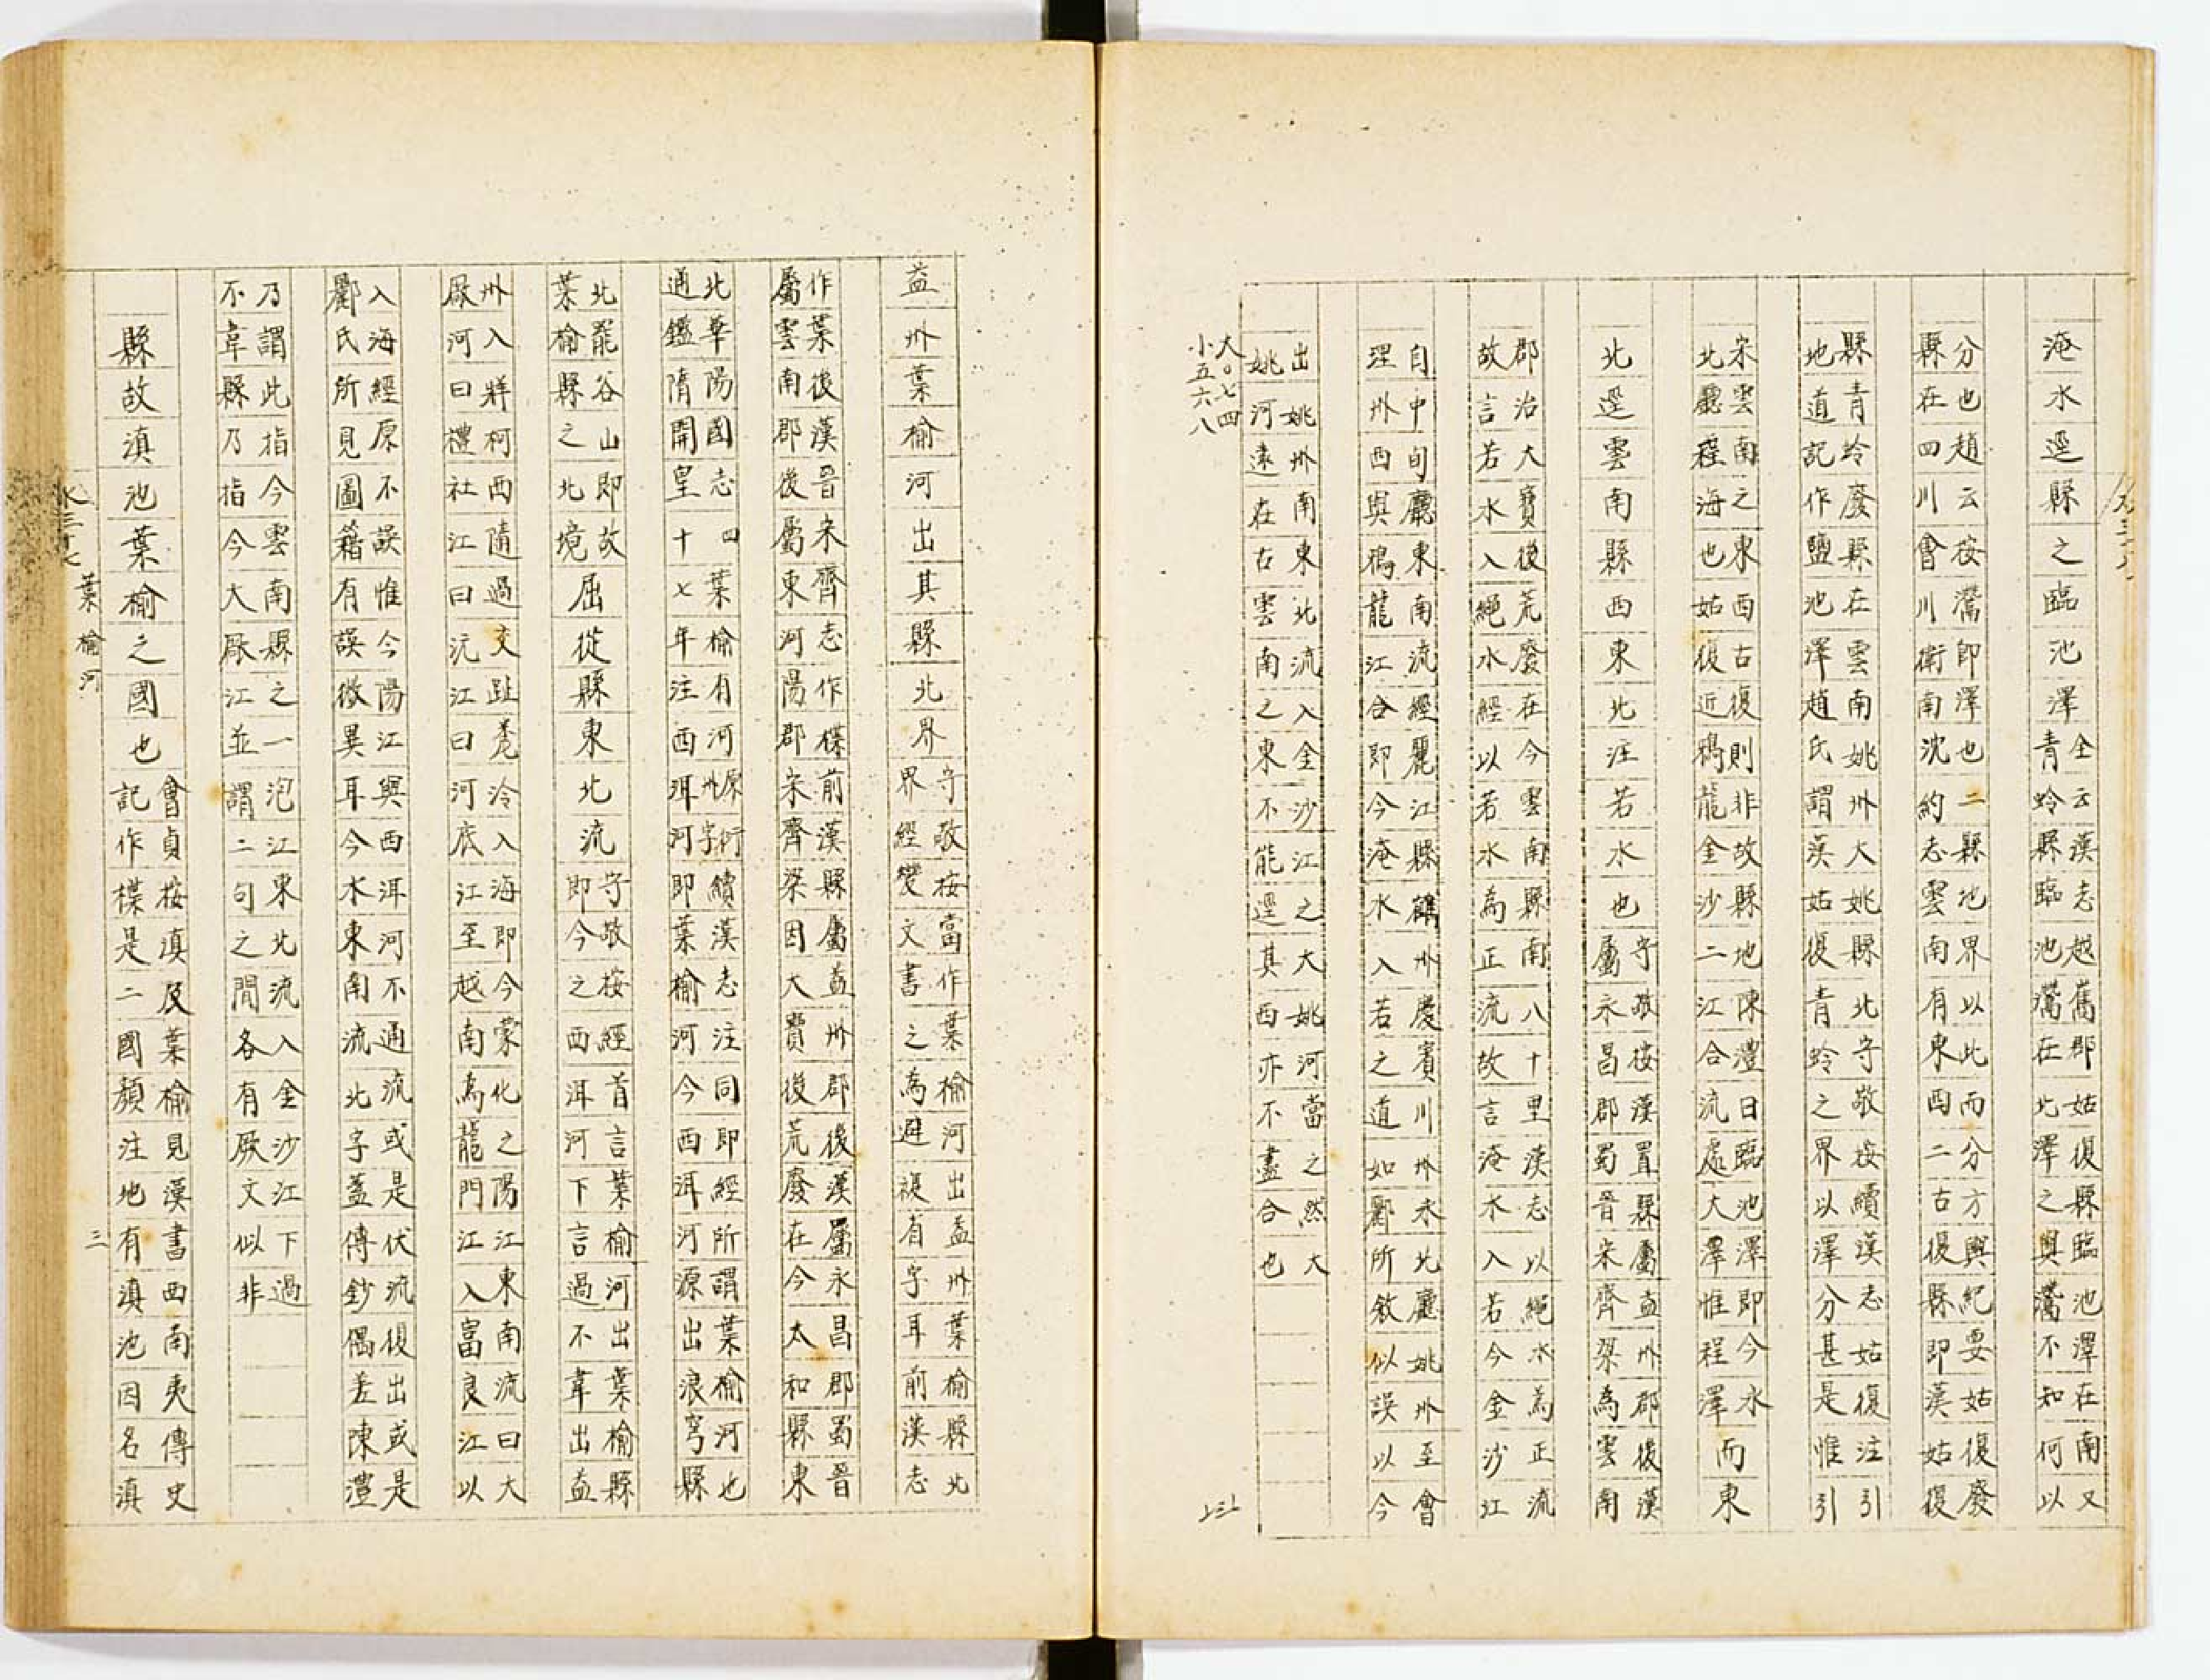 淹水逕縣之臨池澤全云漢志越嶲郡姑復縣臨池澤在南又
青蛉縣臨池灊在北澤之與灊不知何以
分也趙云按灊即澤也二縣地界以此而分方輿紀要姑復廢
縣在四川會川衛南沈約志雲南有東西二古復縣即漢姑復
縣青蛉廢縣在雲南姚州大姚縣北守敬按續漢志姑復注引
地道記作鹽池澤趙氏謂漢姑復青蛉之界以澤分甚是惟引
宋雲南之東西古復則非故縣地陳澧曰臨池澤即今水而東
北廳程海也姑復近鴉龍金沙二江合流處大澤惟程澤
北逕雲南縣西東北注若水也守敬按漢置縣屬益州郡後漢
屬永昌郡蜀晉宋齊梁為雲南
郡治大寶後荒廢在今雲南縣南八十里漢志以繩水為正流
故言若水入繩水經以若水為正流故言淹水入若今金沙江
自中甸廳東南流經麗江縣鶴州慶賓川州永北廳姚州至會
理州西與鴉龍江合即今淹水入若之道如酈所敘似誤以今
出姚州南東北流入金沙江之大姚河當之然大
姚河遠在古雲南之東不能逕其西亦不盡合也
大〇七四
小五六八
益州葉榆河出其縣北界守敬按當作葉榆河出益州葉榆縣北
界經變文書之為避複省字耳前漢志
作葉後漢晉宋齊志作楪前漢縣屬益州郡後漢屬永昌郡蜀晉
屬雲南郡後屬東河陽郡宋齊梁因大寶後荒廢在今太和縣東
北華陽國志四葉榆有河原州字衍續漢志注同即經所謂葉榆河也
通鑑隋開皇十七年注西洱河即葉榆河今西洱河源出浪穹縣
北罷谷山即故屈從縣東北流守敬按經首言葉榆河出葉榆縣
葉榆縣之北境即今之西洱河下言過不韋出益
州入牂柯西隨過交趾𥹋泠入海即今蒙化之陽江東南流曰大
厰河曰禮社江曰沅江曰河底江至越南為龍門江入富良江以
入海經原不誤惟今陽江與西洱河不通流或是伏流復出或是
酈氏所見圖籍有誤微異耳今水東南流北字蓋傳鈔偶差陳澧
乃謂此指今雲南縣之一泡江東北流入金沙江下過
不韋縣乃指今大厰江並謂二句之間各有厥文似非
縣故滇池葉榆之國也會貞按滇及葉榆見漢書西南夷傳史
記作楪是二國顏注地有滇池因名滇
水三十七
葉榆河
三